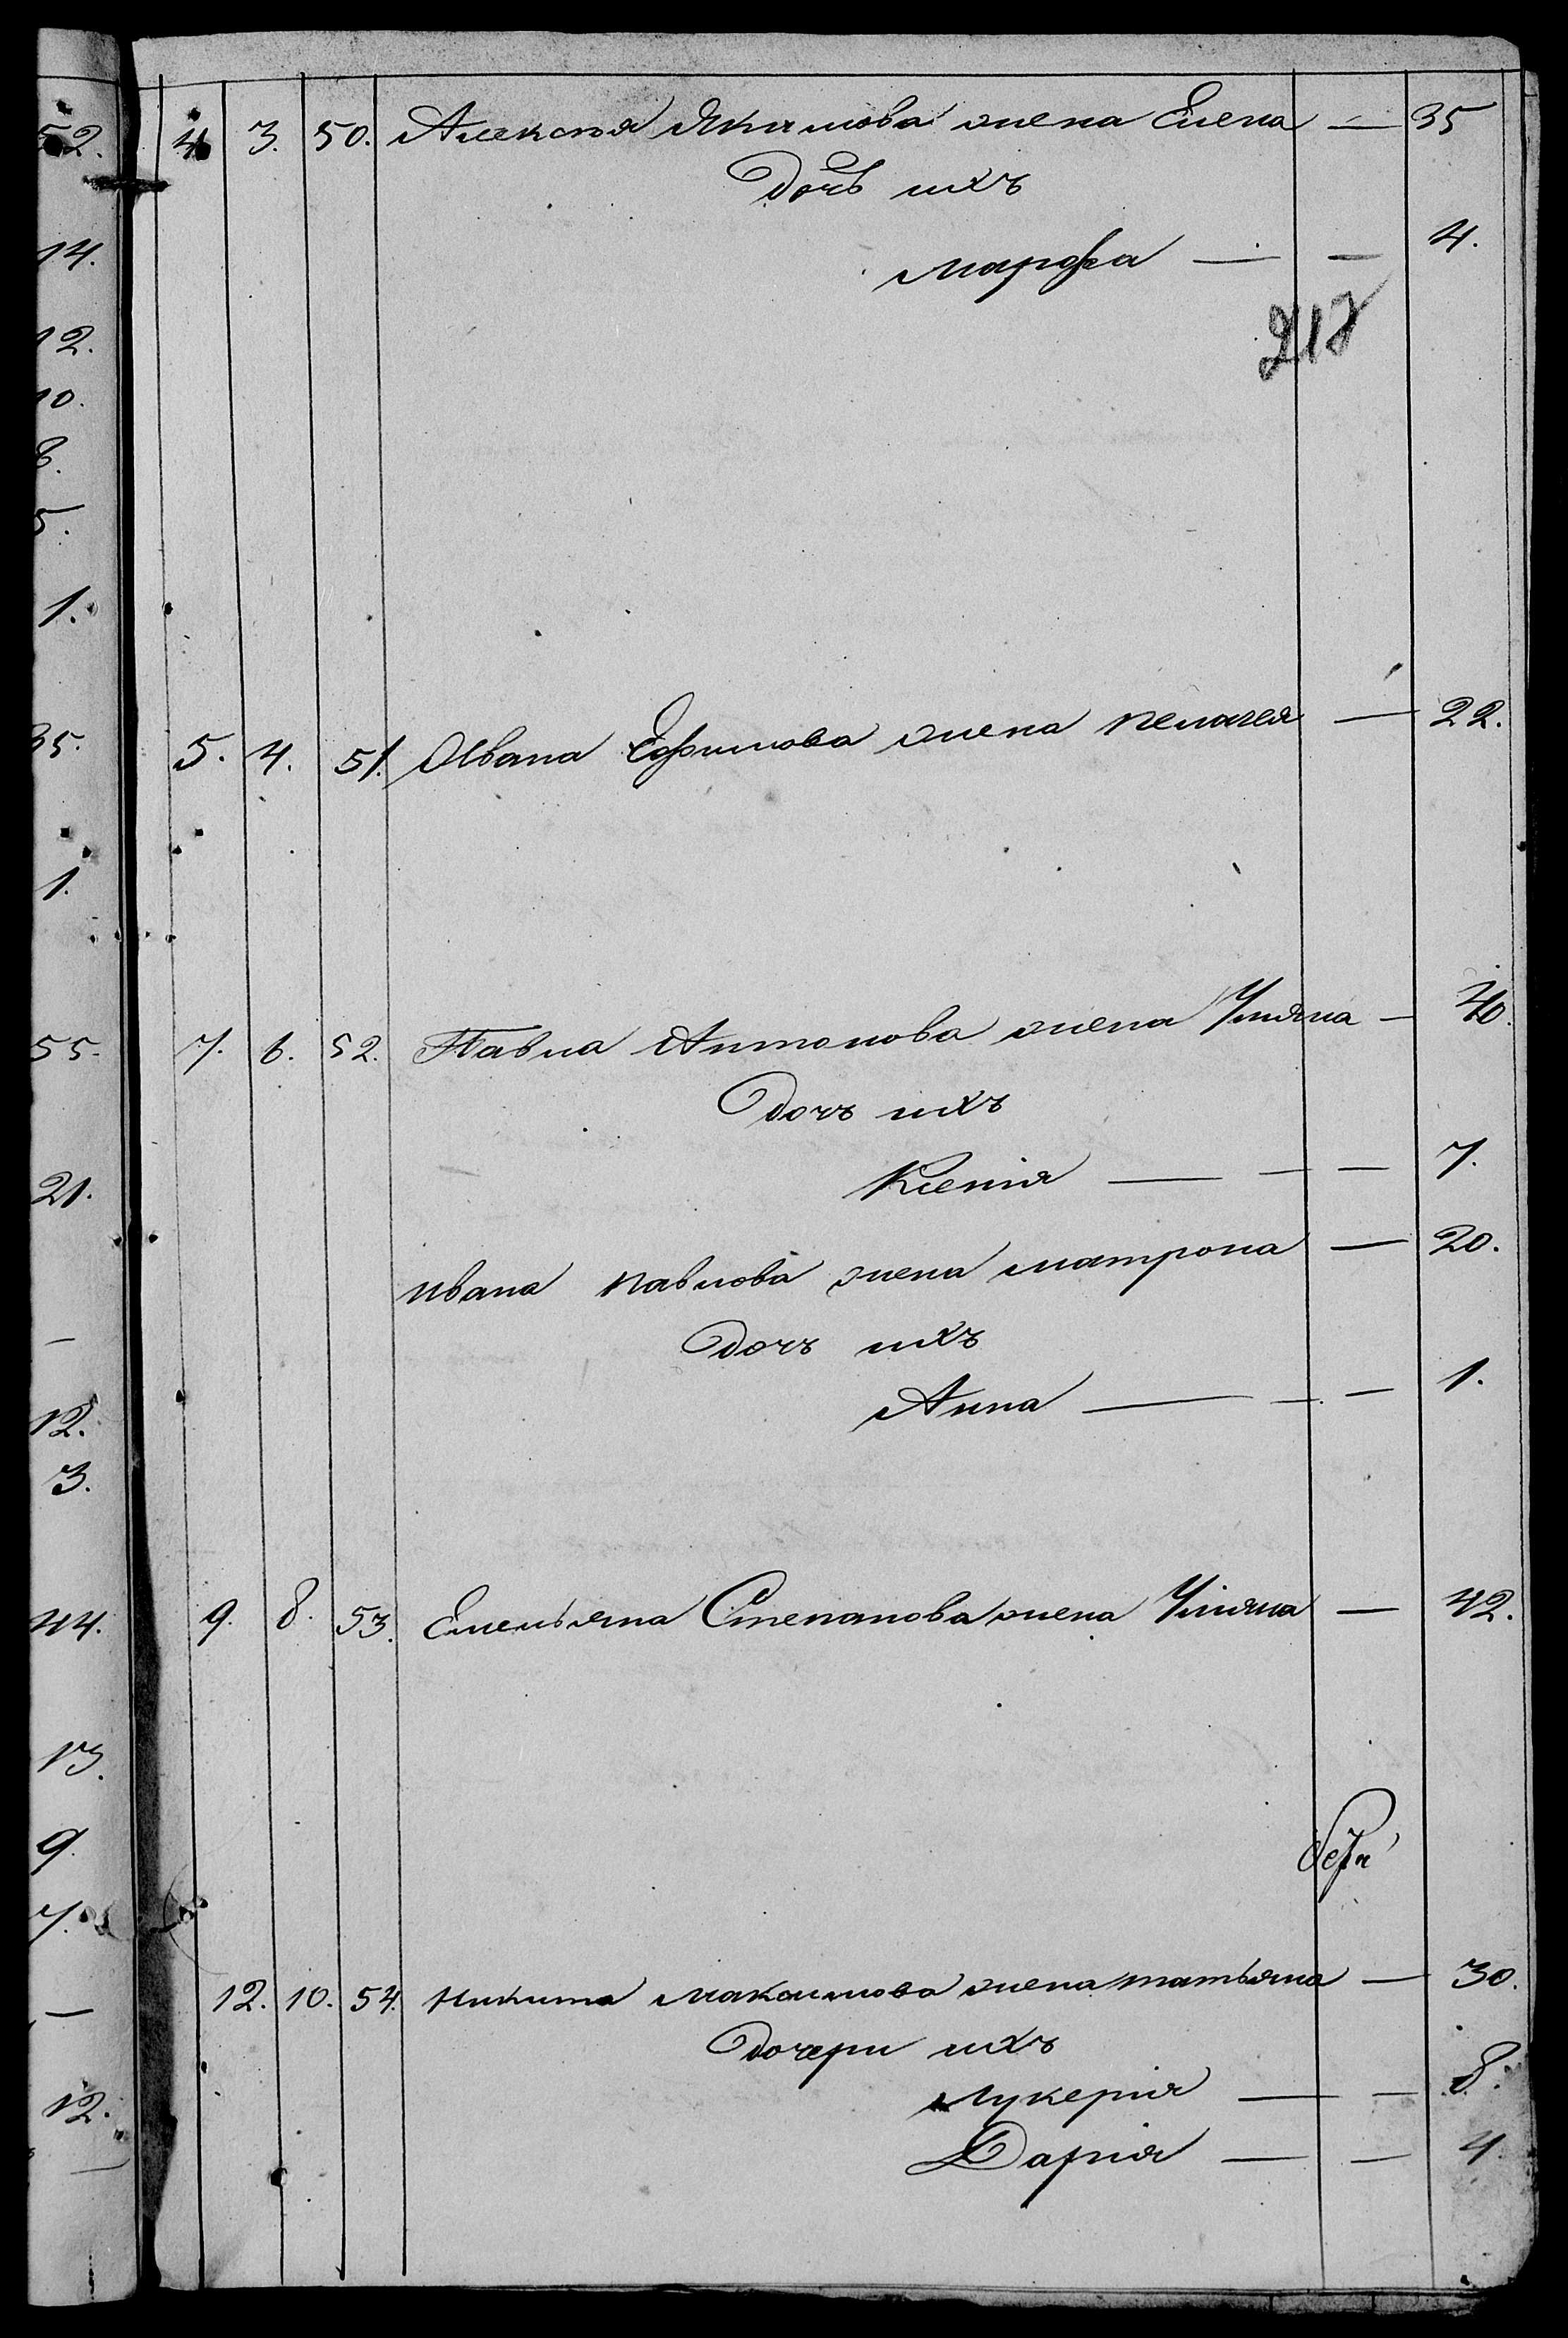 4 3. 50. Алексѣя Якимова жена Елена — 35
Дочь ихъ
Марфа — — 4.
217
5. 4. 51. Ивана Ефимова жена Пелагея — 22.
7. 6. 52. Павла Антонова жена Уляна — 40.
Дочъ ихъ
Ксенія — — — 7.
Ивана Павлова жена Матрона — 20.
Дочъ ихъ
Анна — — — 1.
9. 8. 53. Емельяна Степанова жена Уліяна — 42.
12. 10. 54. Никита Максимова жена Татьяна — 30.
Дочери ихъ
Лукерія — — 8.
Дарія — — 4.
52.
14.
12.
10.
8.
5.
1.
35.
1.
55.
21.
—
12.
3.
44.
13.
9.
7.
—
12.